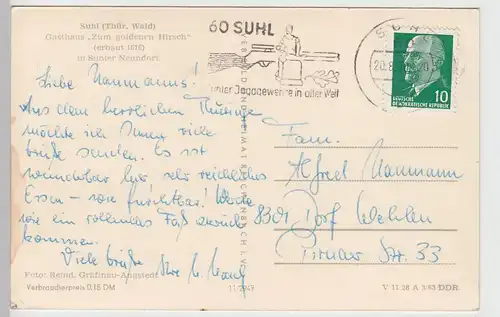 Suhl (Thür. Wald)
Gasthaus „Zum goldenen Hirsch"
(erbaut 1616)
in Suhler Neundorf.
60 SUHL
Jagdgewehre in aller Welt
20.8.
DEUTSCHE
DEMOKRATISCHE REPUBLIK
10
Liebe Naumanns!
Aus dem herrlichen Thüringen
möchte ich Ihnen viele
Grüße senden. Es ist
wunderbar hier sehr reichliches
Essen - wie furchtbar! Werde
wie ein rollendes Faß zurück
kommen.
Viele Grüße Ihre
Fam.
Alfred Naumann
8301 Dorf Wehlen
Pirnaer Str. 33
Foto: Bernd, Gräfinau-Angstedt
Verbraucherpreis 0,15 DM
V 11 28 A 3/63 DDR